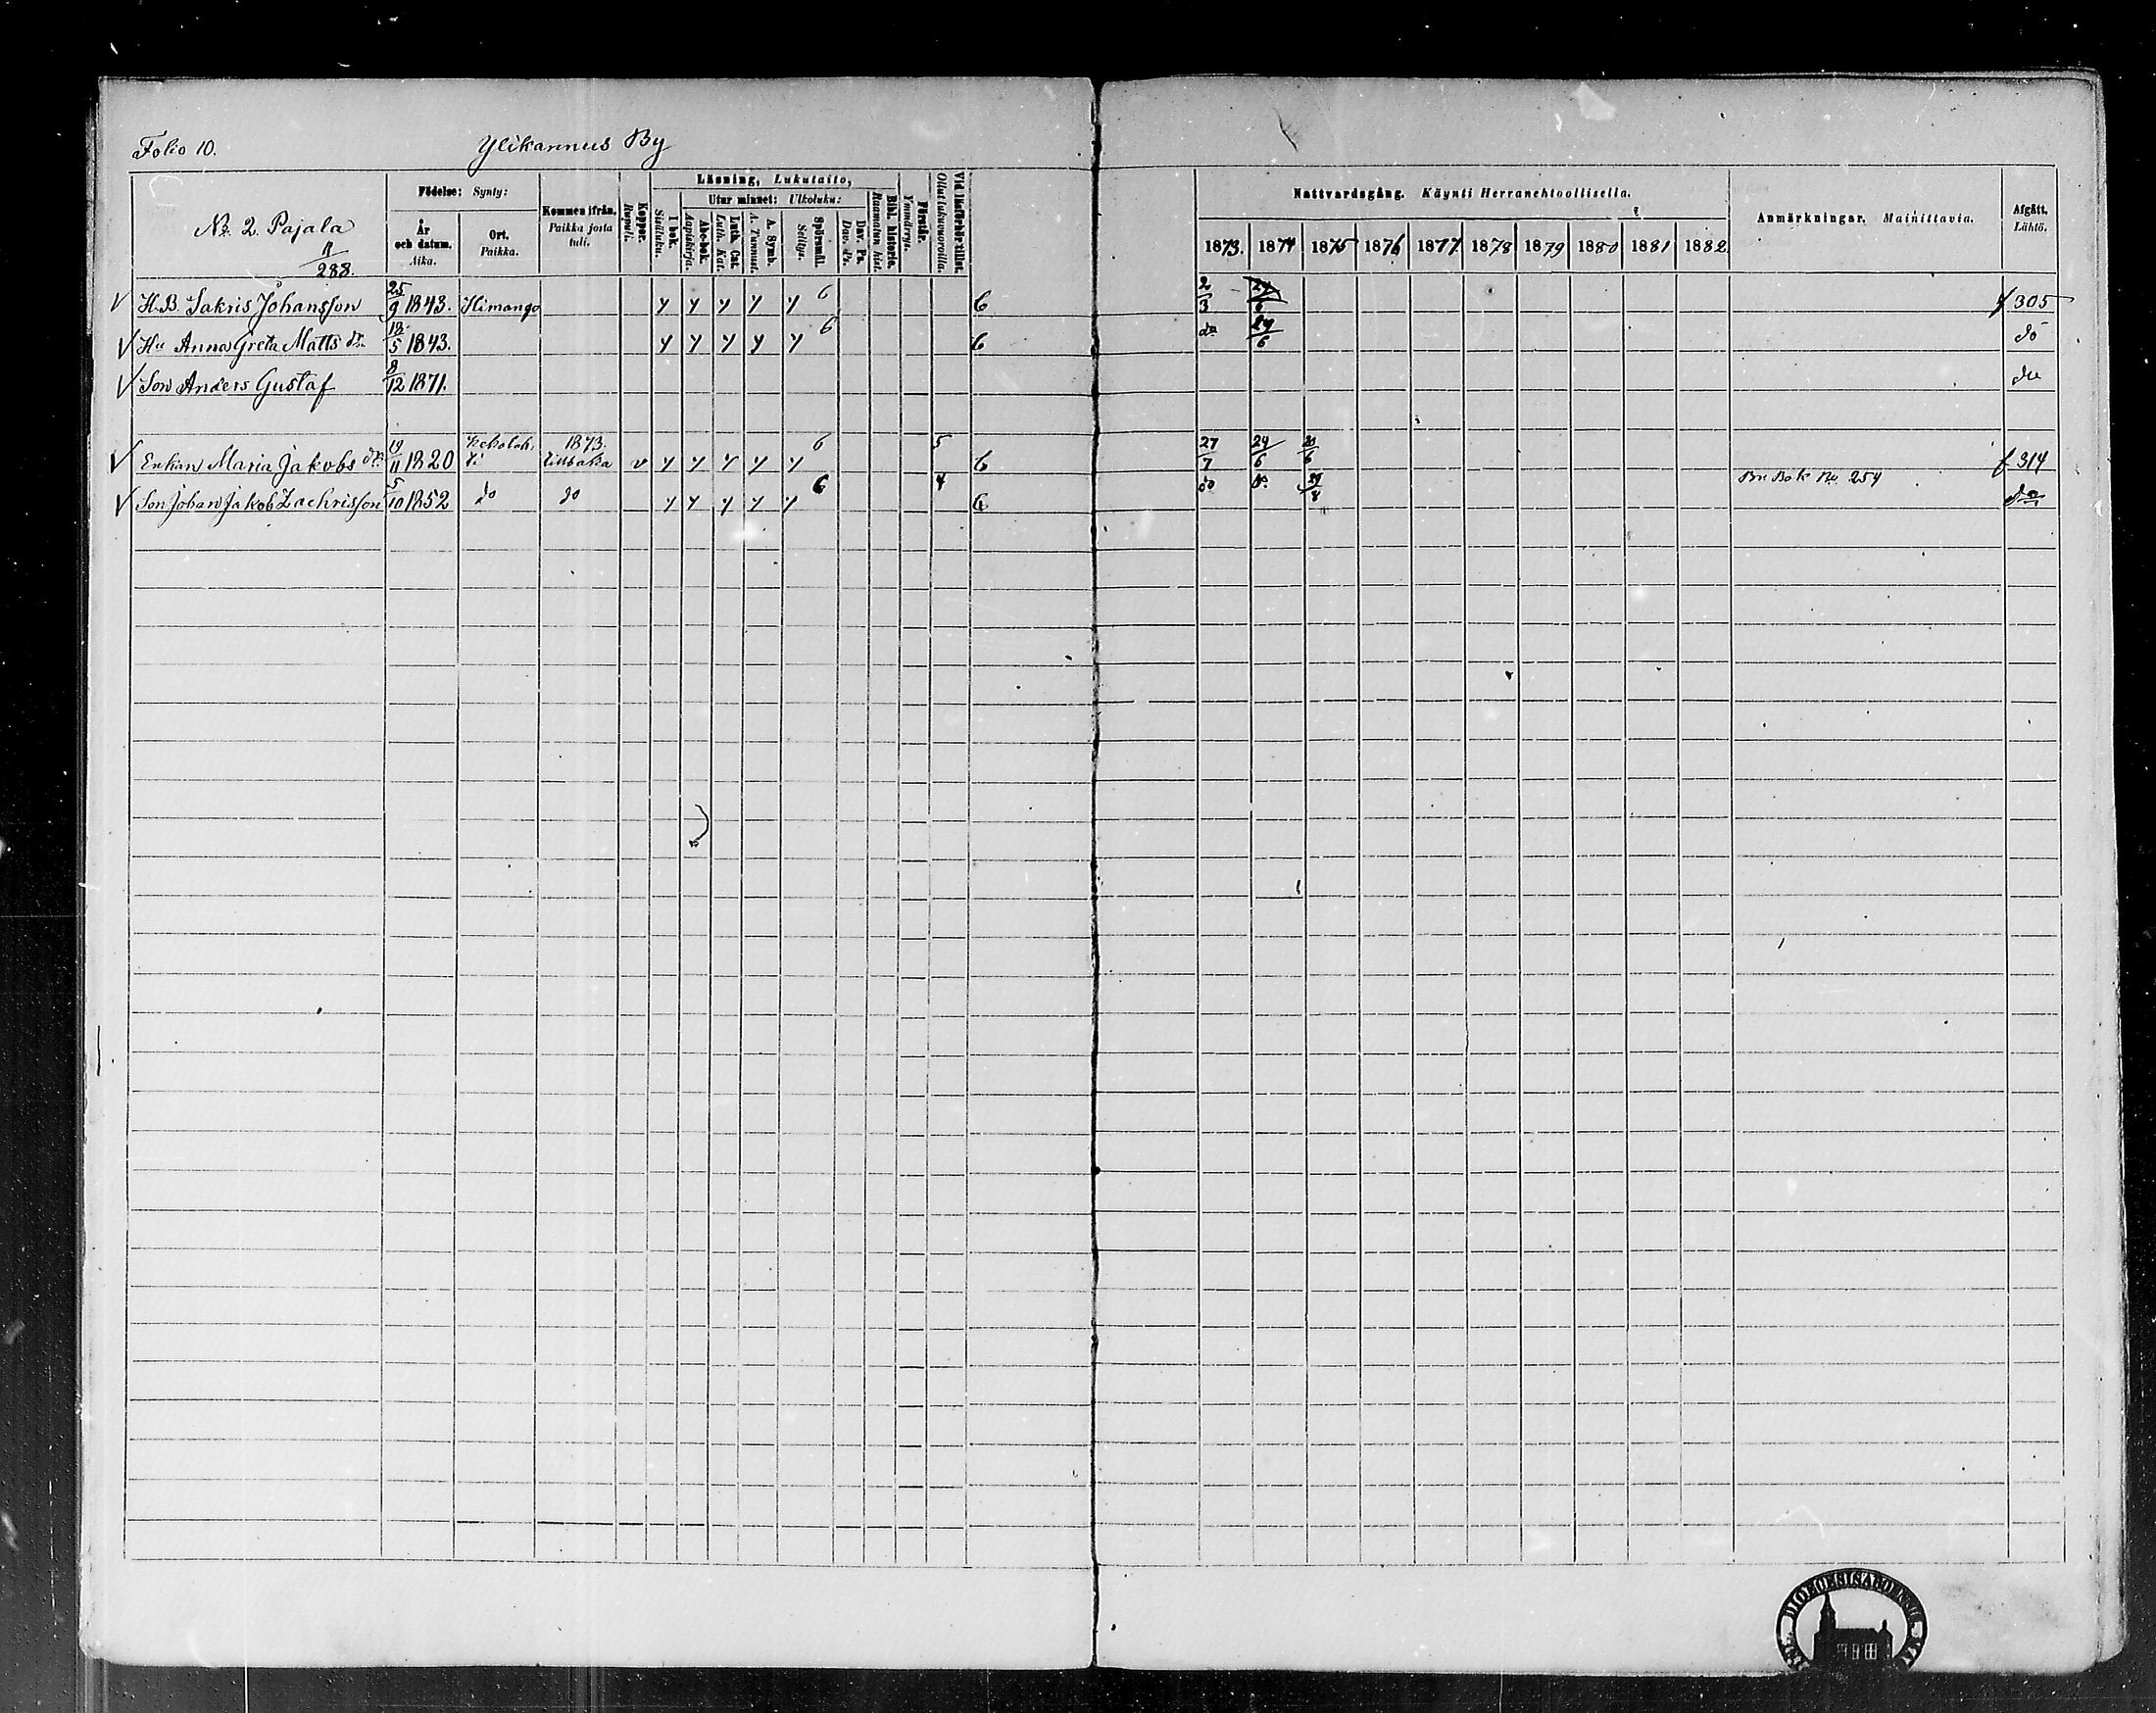 Folio 10. Ylikannus By
No 2. Pajala
11/288.
Födelse: Synty:
År och datum. Aika.
Ort. Paikka.
Kommen ifrån. Paikka josta tuli.
Koppor. Rupuli.
Läsning, Lukutaito,
I bok. Sisäluku.
Utur minnet: Ulkoluku:
Abc-bok. Aapiskirja.
Luth. Cat. Luth. Kat.
A. Symb. A. Tunnust.
Spörsmål. Selitys.
Dav. Ps. Dav. Ps.
Bibl. historie. Raamatun hist.
Förstår. Ymmärrys.
Vid läsförhör tillst. Ollut lukuvuoroilla.
Nattvardsgång. Käynti Herranehtoollisella.
1873. 1874 1875 1876 1877 1878 1879 1880 1881 1882
Anmärkningar. Mainittavia.
Afgått. Lähtö.
H.B. Sakris Johansson 25/9 1843. Himango y y y y y 6 6 2/3 f 305
Hu Anna Greta Matts dr. 13/5 1843. y y y y y 6 6 do 24/6 do
Son Anders Gustaf 8/12 1871. do
Enkan Maria Jakobs dr. 19/11 1820 1873. v y y y y y 6 5 6 27/7 24/6 f 314
Son Johan Jakob Zachrisson 5/10 1852 do do y y y y y 6 4 6 do do Bok No 254 do
DIOECESIS ABOENSIS